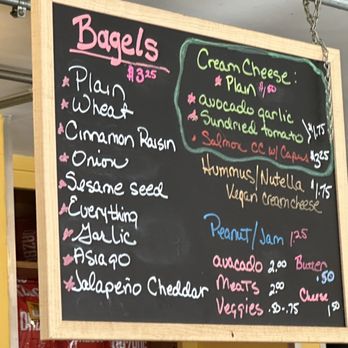 Bagels
$3.25
Plain
Wheat
Cinnamon Raisin
Onion
Sesame seed
Everything
Garlic
Asiago
Jalapeño Cheddar
Cream Cheese:
Plain $1.50
avocado garlic
Sundried tomato $1.75
Salmon CC w/ Capers $3.25
Hummus/Nutella
Vegan creamcheese $1.75
Peanut/Jam 1.25
avocado 2.00
Meats 2.00
Veggies .50-.75
Butter .50
Cheese 1.50